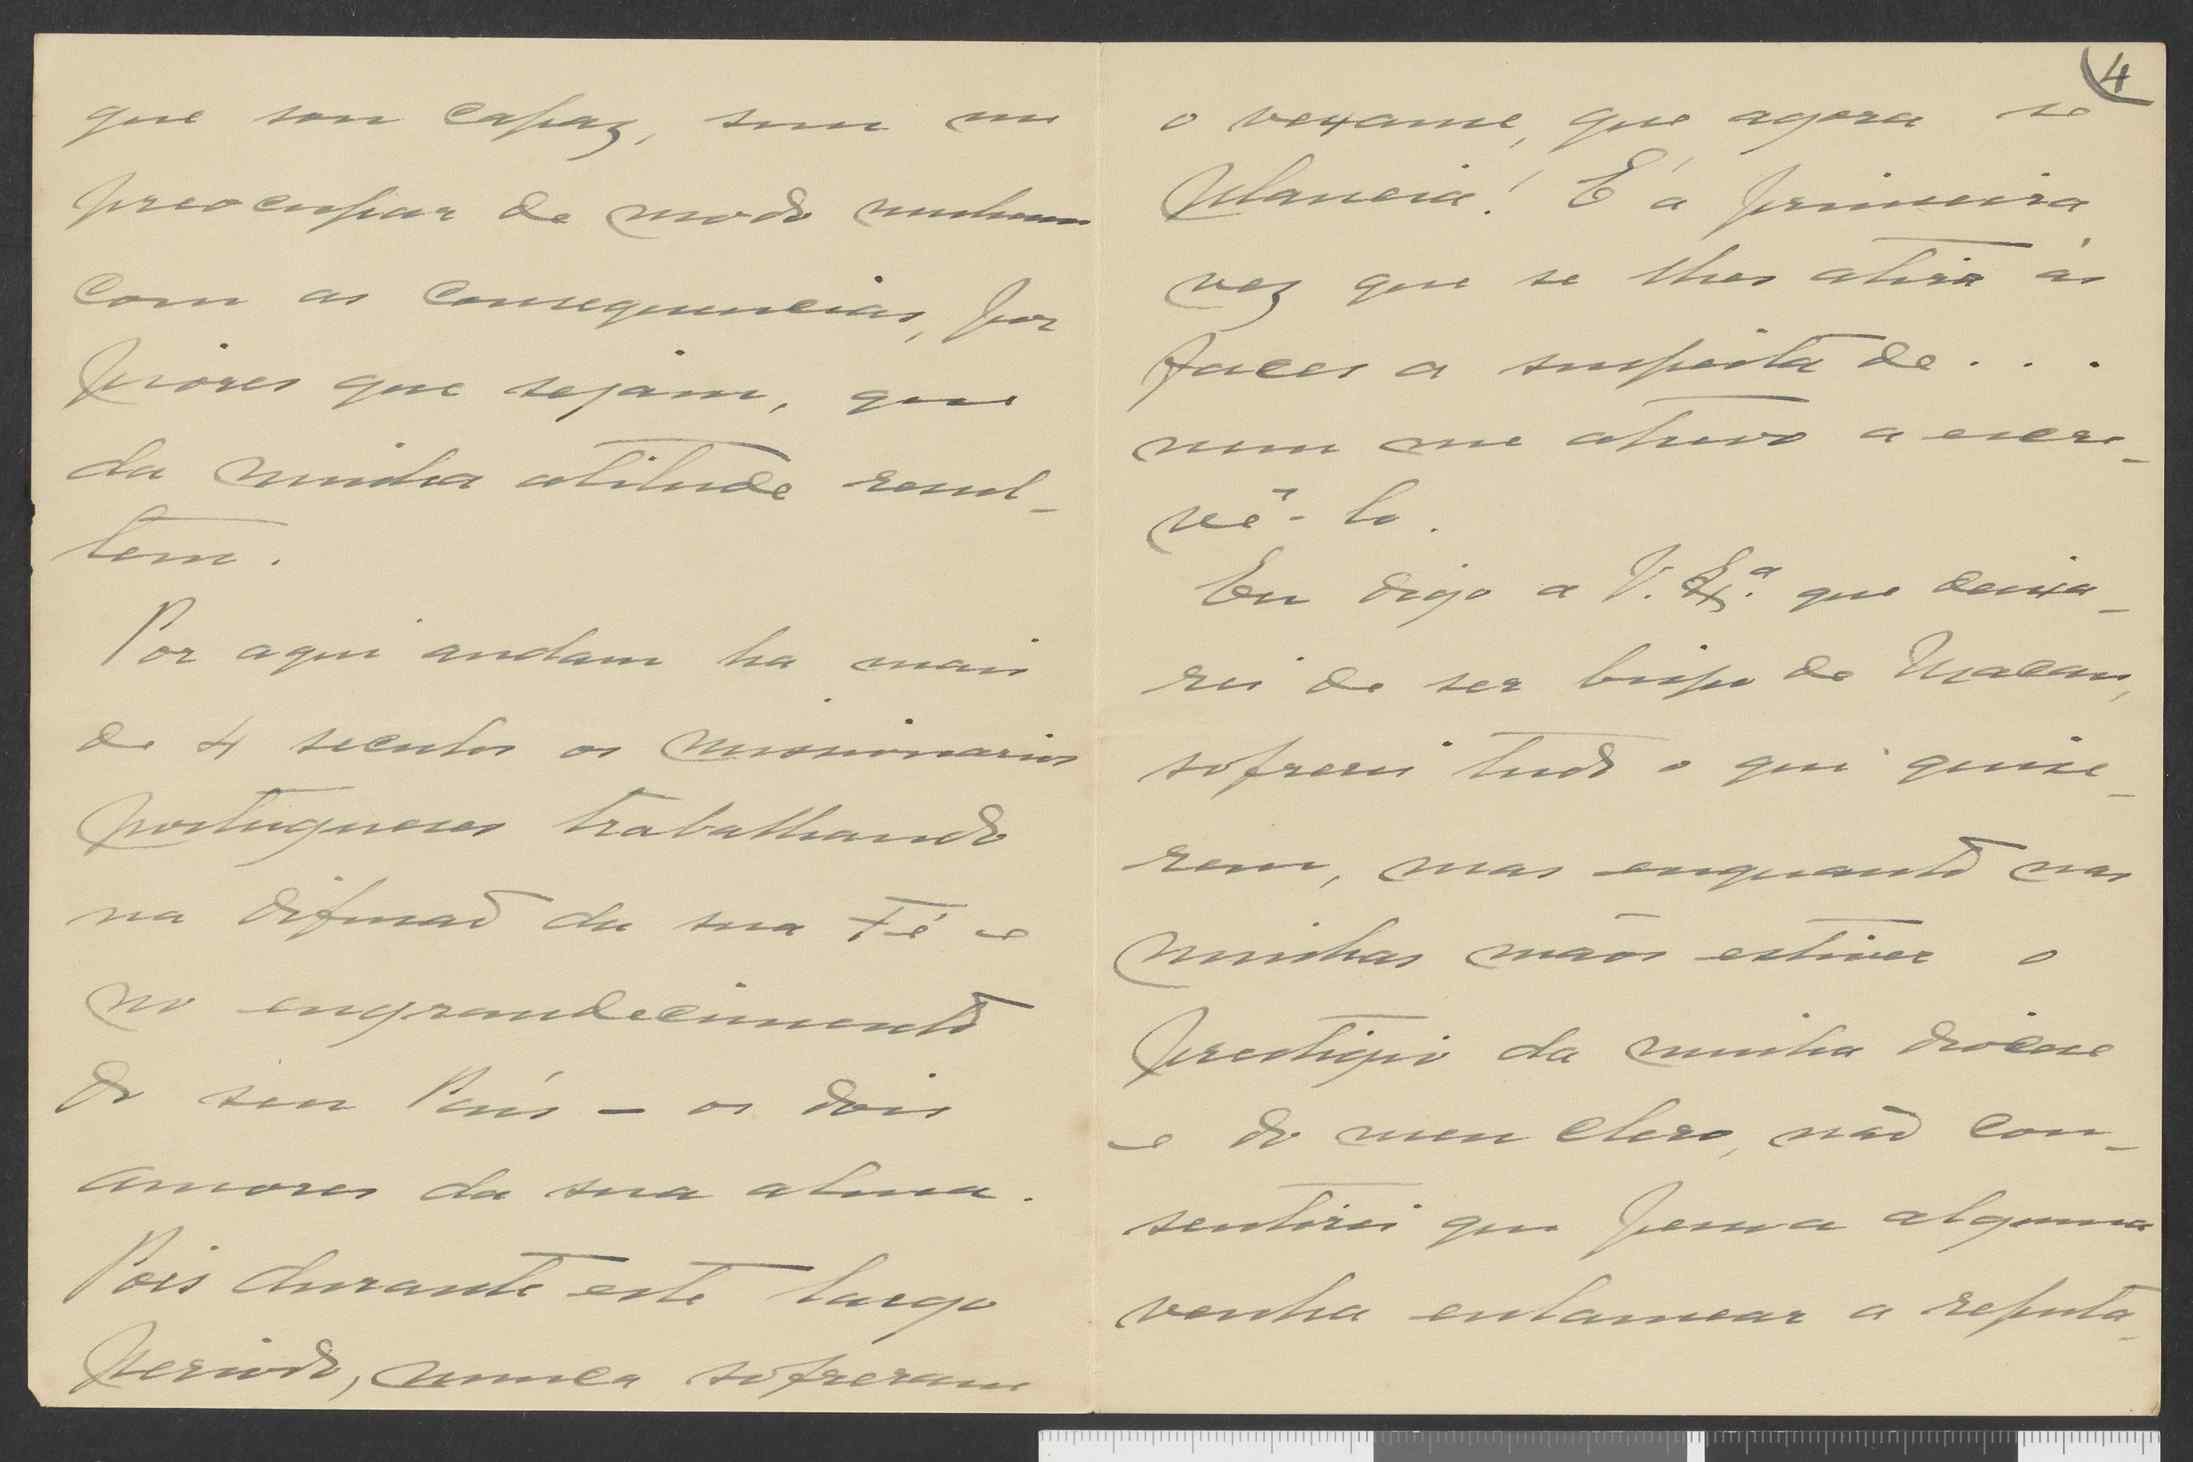 que sou capaz, sem me
preocupar de modo nenhum
com as consequencias, por
piores que sejam, que
da minha atitude resul-
tem.
Por aqui andam ha mais
de 4 seculos os missionarios
portugueses trabalhando
na difusaõ da sua Fé e
no engrandecimento
do seu País - os dois
amores da sua alma.
Pois durante este largo
periodo, nunca sofreram
4
o vexame, que agora se
planeia! É a primeira
vez que se lhes atira ás
faces a suspeita de...
nem me atrevo a escre-
vê-lo.
Eu digo a V. Ex.ª que deixa-
rei de ser bispo de Macau,
sofrerei tudo o que quise-
rem, mas enquanto nas
minhas mãos estiver o
prestigio da minha diocese
e do meu clero, naõ con-
sentirei que pessoa alguma
venha enlamear a reputa-